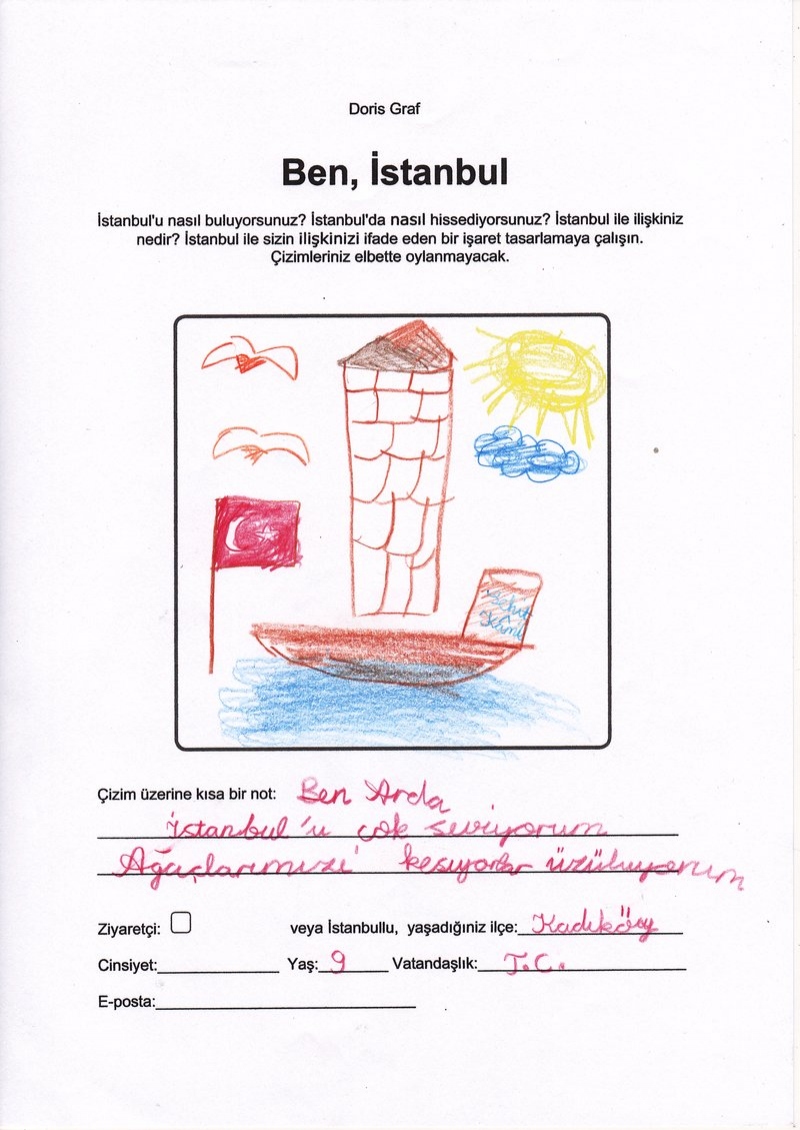 Doris Graf
Ben, İstanbul
İstanbul'u nasıl buluyorsunuz? İstanbul'da nasıl hissediyorsunuz? İstanbul ile ilişkiniz
nedir? İstanbul ile sizin ilişkinizi ifade eden bir işaret tasarlamaya çalışın.
Çizimleriniz elbette oylanmayacak.
Çizim üzerine kısa bir not: Ben Arda
İstanbul'u çok seviyorum
Ağaçlarımızı kesiyorlar üzülüyorum
Ziyaretçi: veya İstanbullu, yaşadığınız ilçe: Kadıköy
Cinsiyet: Yaş: 9 Vatandaşlık: T.C.
E-posta: